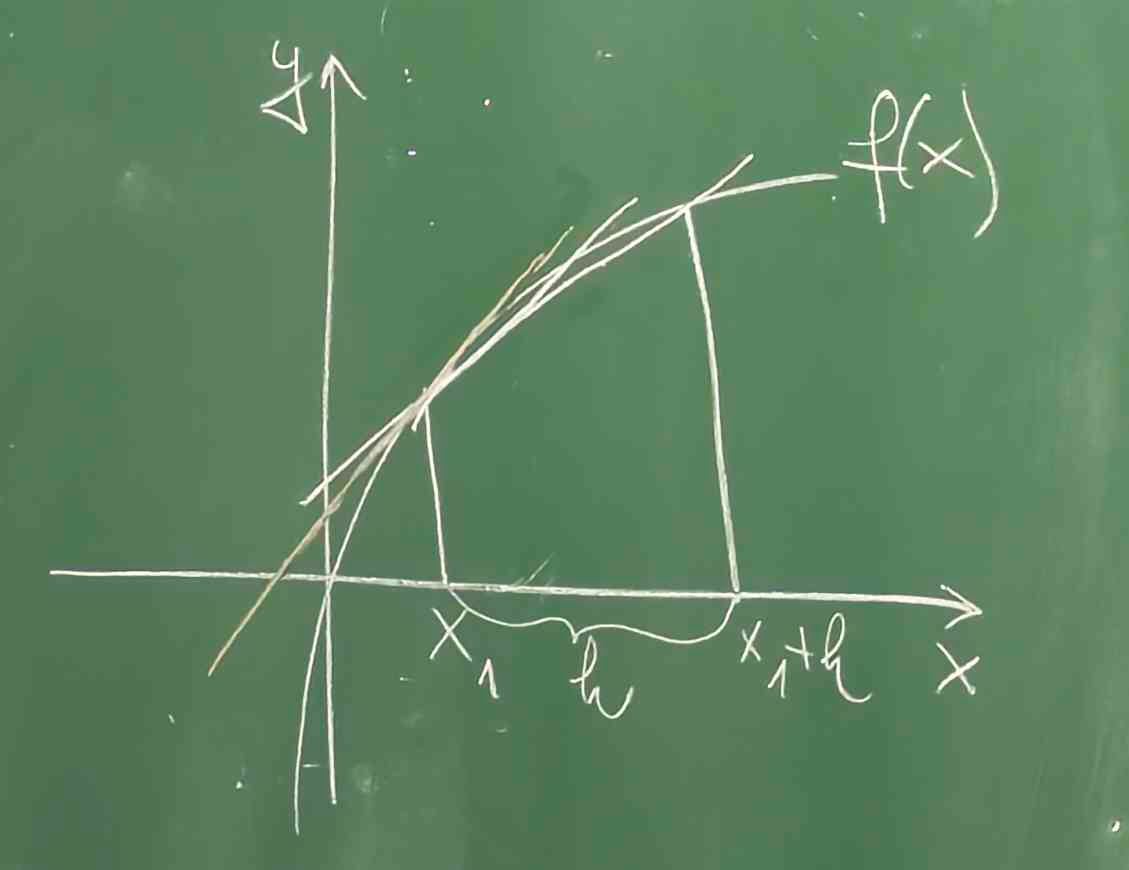 y
f(x)
x₁
h
x₁+h
x